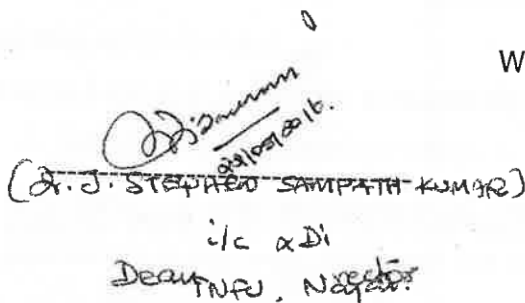 W
29/05/2016.
(Dr. J. STEPHEN SAMPATH KUMAR)
i/c
Dean
TNFU, Nagai.